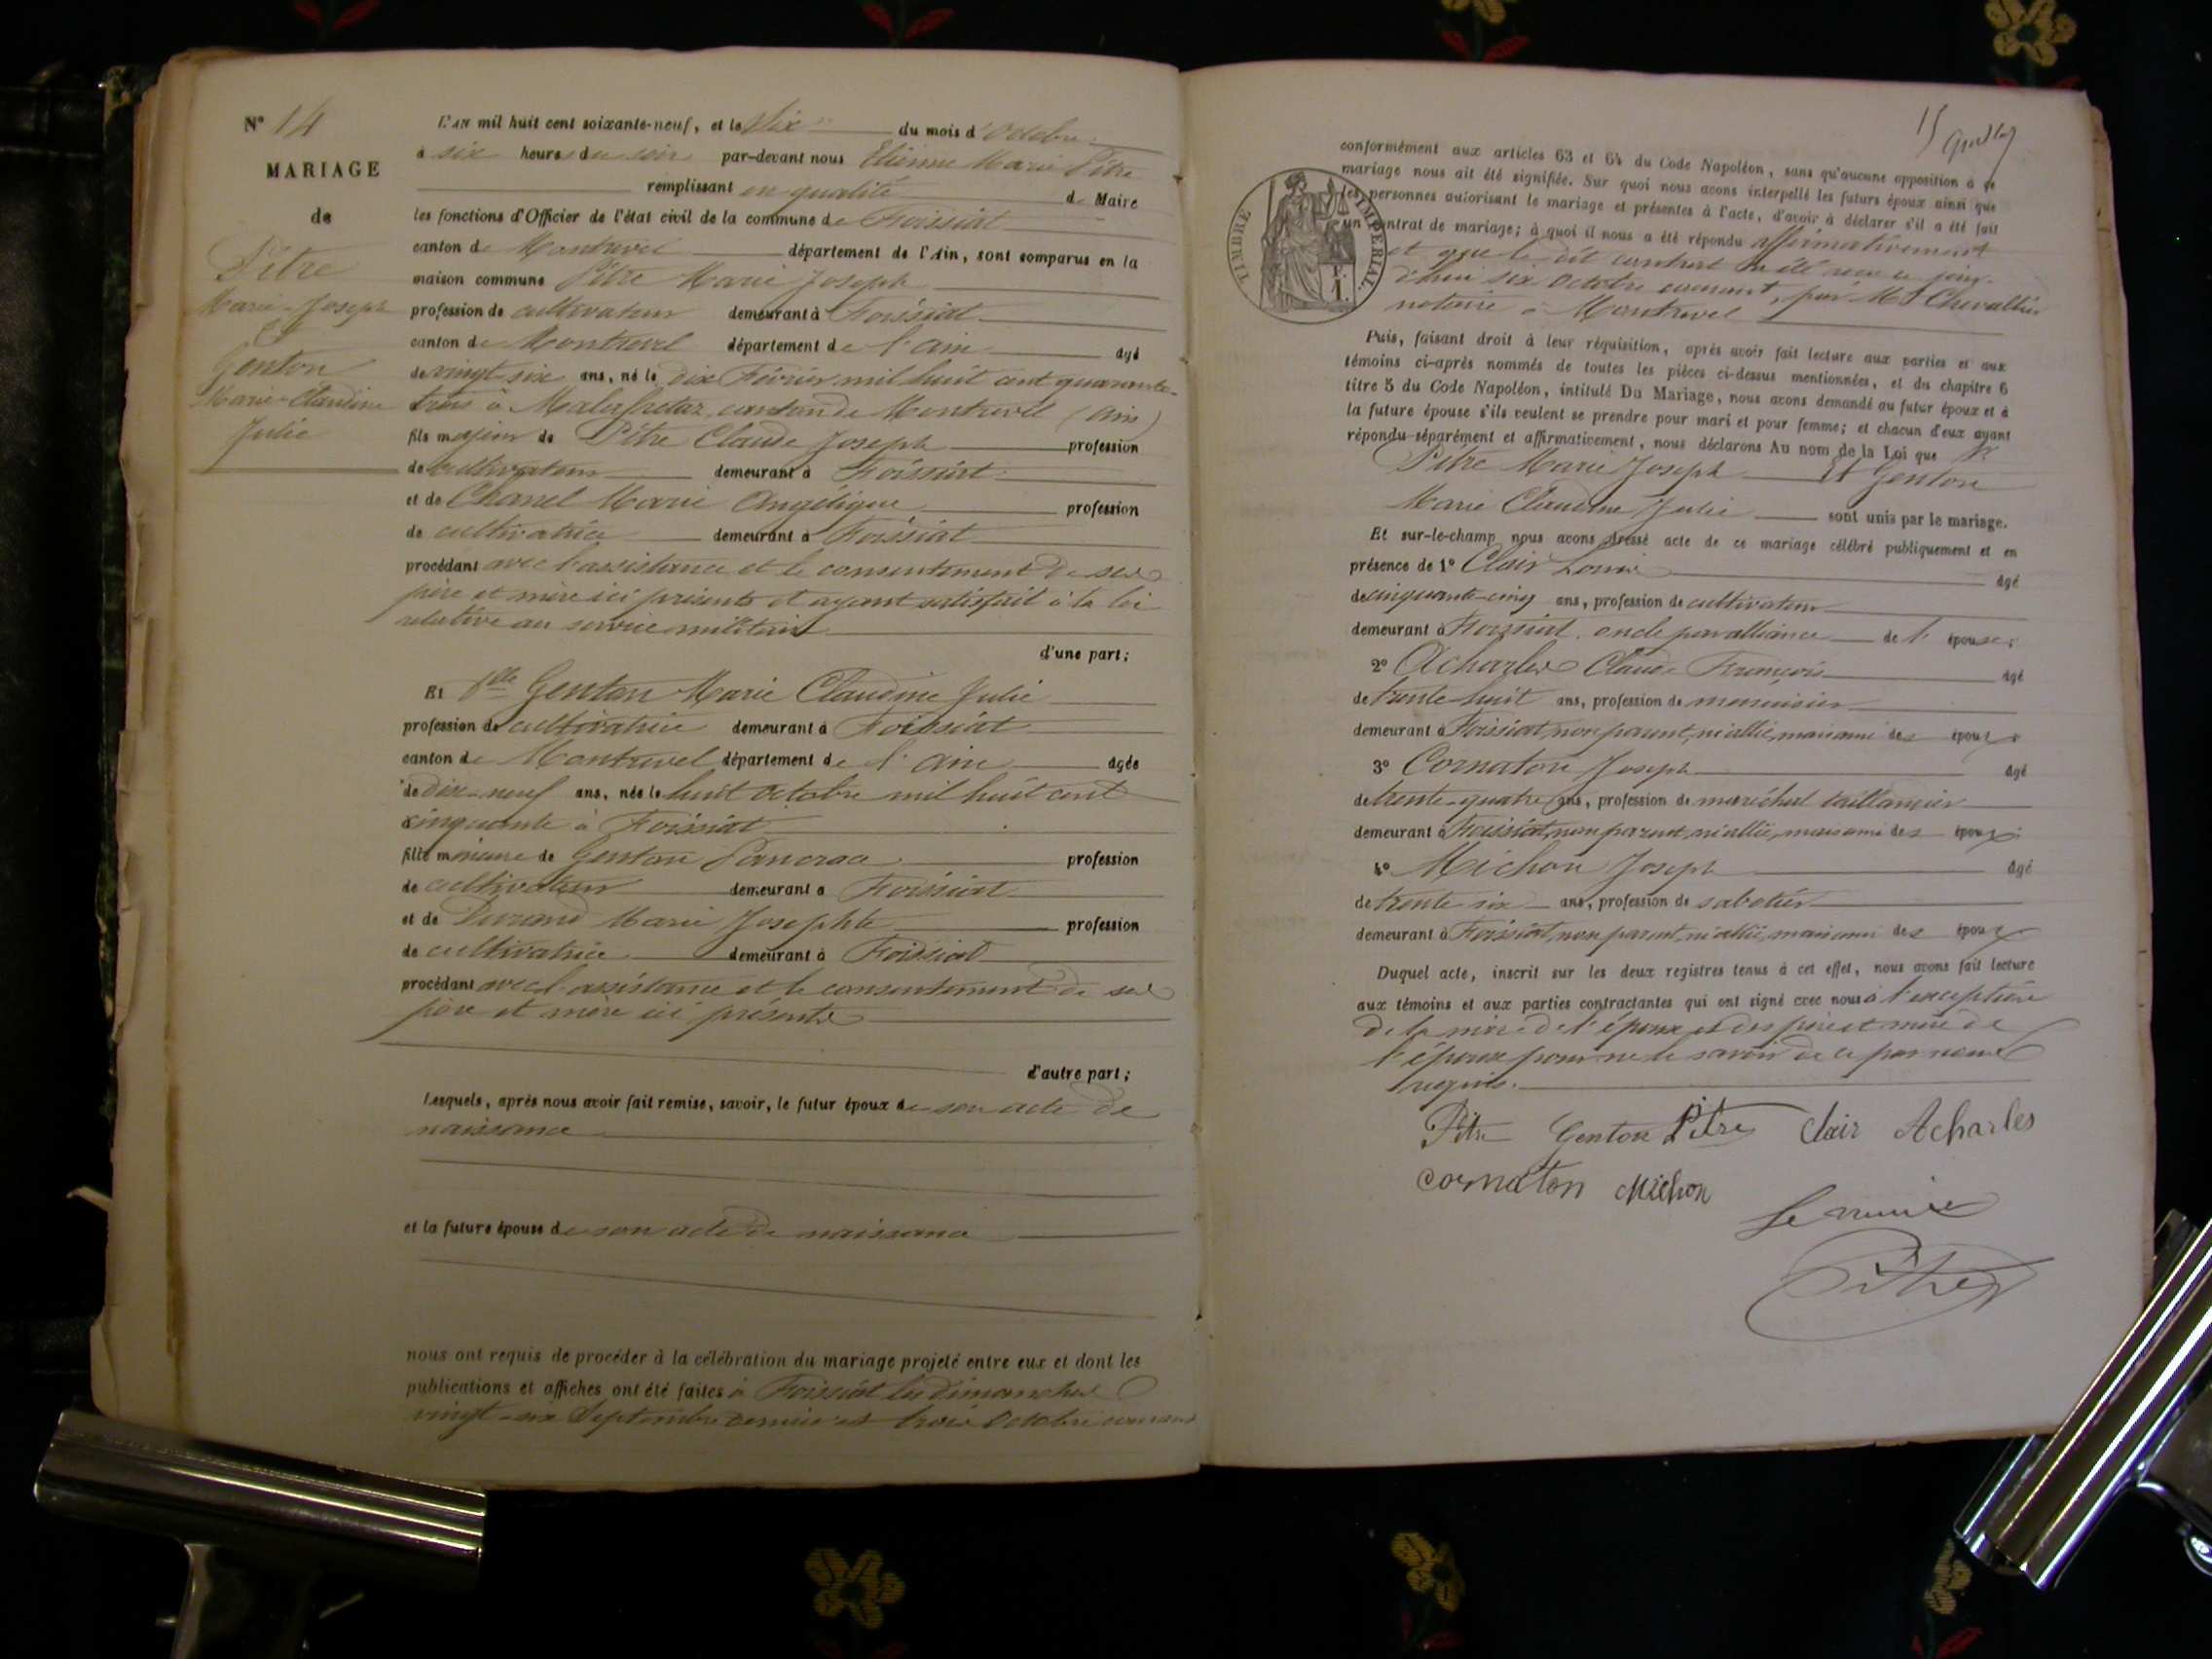 N° 14
MARIAGE
de
Pitre
Marie-Joseph
Et
Genton
Marie-Claudine
Julie
L'AN mil huit cent soixante-neuf, et le six du mois d'Octobre
à six heures du soir par-devant nous Etienne Marie Pitre
remplissant en qualité de Maire
les fonctions d'Officier de l'état civil de la commune de Foissiat
canton de Montrevel département de l'Ain, sont comparus en la
maison commune Pitre Marie Joseph
profession de cultivateur demeurant à Foissiat
canton de Montrevel département de l'Ain âgé
de vingt six ans, né le dix Février mil huit cent quarante-
trois à Malafretaz canton de Montrevel (Ain)
fils majeur de Pitre Claude Joseph profession
de cultivateur demeurant à Foissiat
et de Chanel Marie Angélique profession
de cultivatrice demeurant à Foissiat
procédant avec l'assistance et le consentement de ses
père et mère ici présents et ayant satisfait à la loi
relative au service militaire
d'une part;
Et Flle Genton Marie Claudine Julie
profession de cultivatrice demeurant à Foissiat
canton de Montrevel département de l'Ain âgée
de dix-neuf ans, née le huit Octobre mil huit cent
cinquante à Foissiat
fille mineure de Genton Pancrace profession
de cultivateur demeurant à Foissiat
et de Durand Marie Josephte profession
de cultivatrice demeurant à Foissiat
procédant avec l'assistance et le consentement de ses
père et mère ici présents
d'autre part;
Lesquels, après nous avoir fait remise, savoir, le futur époux de son acte de
naissance
et la future épouse de son acte de naissance
nous ont requis de procéder à la célébration du mariage projeté entre eux et dont les
publications et affiches ont été faites à Foissiat les dimanches
vingt-six Septembre dernier et trois Octobre courant
15
TIMBRE IMPERIAL
conformément aux articles 63 et 64 du Code Napoléon, sans qu'aucune opposition à ce
mariage nous ait été signifiée. Sur quoi nous avons interpellé les futurs époux ainsi que
les personnes autorisant le mariage et présentes à l'acte, d'avoir à déclarer s'il a été fait
un contrat de mariage; à quoi il nous a été répondu affirmativement
et que le dit contrat a été reçu ce jour-
d'hui six Octobre courant, par Me Chevallier
notaire à Montrevel
Puis, faisant droit à leur réquisition, après avoir fait lecture aux parties et aux
témoins ci-après nommés de toutes les pièces ci-dessus mentionnées, et du chapitre 6
titre 5 du Code Napoléon, intitulé Du Mariage, nous avons demandé au futur époux et à
la future épouse s'ils veulent se prendre pour mari et pour femme; et chacun d'eux ayant
répondu séparément et affirmativement, nous déclarons Au nom de la Loi que
Pitre Marie Joseph Et Genton
Marie Claudine Julie sont unis par le mariage.
Et sur-le-champ nous avons dressé acte de ce mariage célébré publiquement et en
présence de 1° Clair Louis âgé
de cinquante-cinq ans, profession de cultivateur
demeurant à Foissiat oncle par alliance de l'épouse;
2° Acharles Claude François âgé
de trente-huit ans, profession de menuisier
demeurant à Foissiat, non parent, ni allié, mais ami des époux
3° Cornaton Joseph âgé
de trente-quatre ans, profession de maréchal taillandier
demeurant à Foissiat, non parent, ni allié, mais ami des époux;
4° Michon Joseph âgé
de trente six ans, profession de sabotier
demeurant à Foissiat, non parent, ni allié, mais ami des époux
Duquel acte, inscrit sur les deux registres tenus à cet effet, nous avons fait lecture
aux témoins et aux parties contractantes qui ont signé avec nous à l'exception
de la mère de l'époux et des père et mère de
l'épouse pour ne le savoir de ce par nous
requis.
Pitre Genton Pitre Clair Acharles
Cornaton Michon
Le maire
Pitre